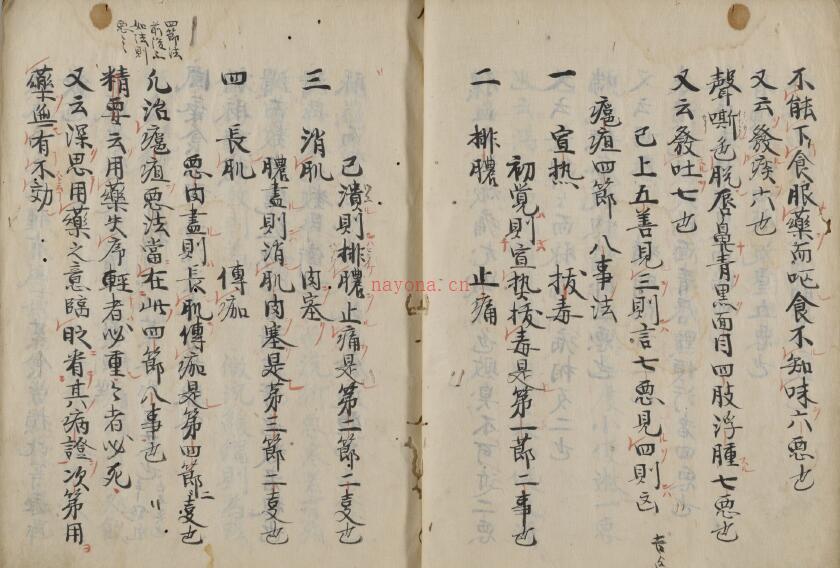 不能下食服藥而呕食不知味六悪也
又云發痰六也
聲嘶色脱唇鼻青黒面目四肢浮腫七悪也
又云發吐七也
已上五善見三則言七悪見四則凶
癰疽四節八事法
一 宣热 拔毒
初覚則宣热拔毒是第一節二事也
二 排膿 止痛
已潰則排膿止痛是第二節二事也
三 消肌 肉塞
膿盡則消肌肉塞是第三節二事也
四 長肌 傅痂
悪肉盡則長肌傅痂是第四節二事也
凢治癰疽悪法當在此四節八事也
精要云用藥失序軽者必重々者必死
又云深思用藥之意臨眂看其病證次第用
藥無有不効
四節法
nayona.cn